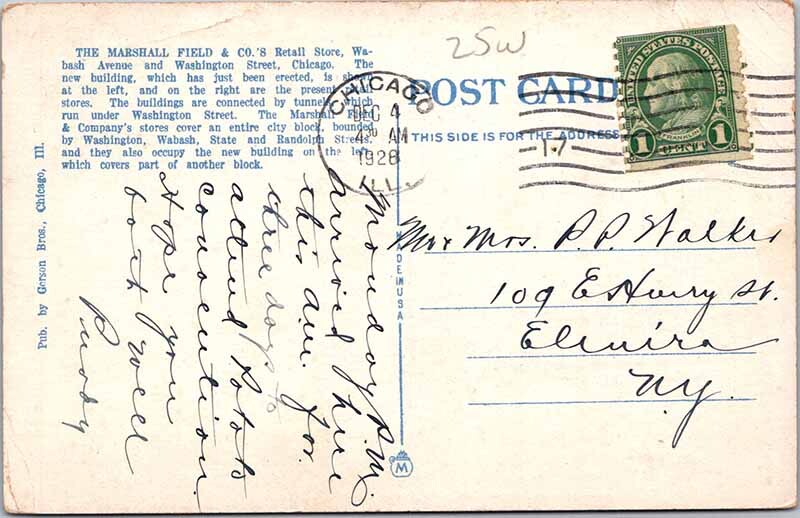 25W
THE MARSHALL FIELD & CO.'S Retail Store, Wa-
bash Avenue and Washington Street, Chicago. The
new building, which has just been erected, is shown
at the left, and on the right are the present retail
stores. The buildings are connected by tunnel, which
run under Washington Street. The Marshall Field
& Company's stores cover an entire city block, bounded
by Washington, Wabash, State and Randolph Streets,
and they also occupy the new building on the left
which covers part of another block.
Pub. by Gerson Bros., Chicago, Ill.
POST CARD
THIS SIDE IS FOR THE ADDRESS
CHICAGO
DEC 4
4 30 AM
1928
ILL.
17
UNITED STATES POSTAGE
FRANKLIN
1 1
MADE IN USA
M
Monday P.M.
Arrived here
this am. for
three days to
attend
convention.
Hope you
both well
Mr & Mrs. P. P. Walker
109 E Henry St.
Elmira
N.Y.